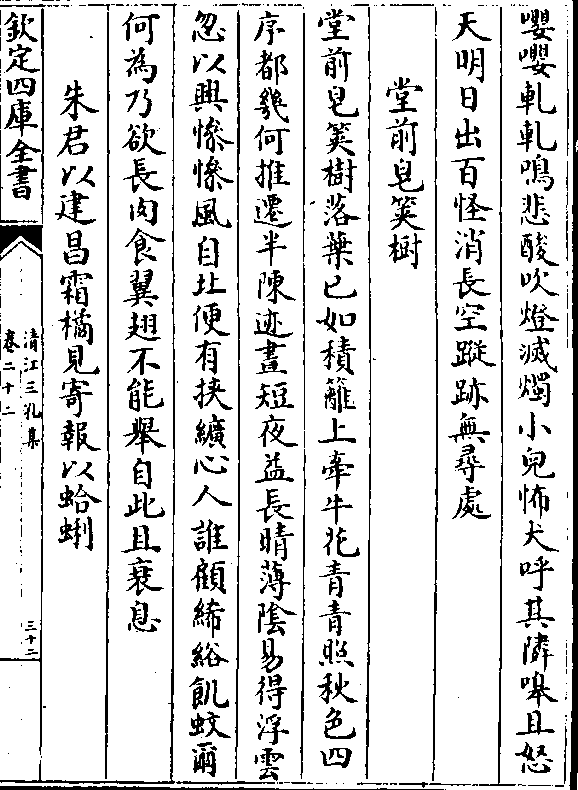 嚶嚶軋軋鳴悲酸吹燈滅燭小兒怖犬呼其隣嘷且怒
天明日出百怪消長空蹤跡無尋處
堂前皂筴樹
堂前皂筴樹落葉已如積籬上牽牛花青青照秋色四
序都幾何推遷半陳迹晝短夜益長晴薄陰易得浮雲
忽以興慘慘風自北便有挾纊心人誰顧絺綌飢蚊爾
何為乃欲長肉食翼翅不能舉自此且衰息
朱君以建昌霜橘見寄報以蛤蜊
欽定四庫全書
清江三孔集
卷二十二
三十二